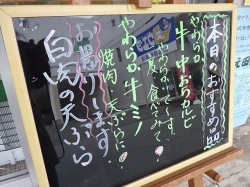 本日のおすすめ品
やわらか
牛中おちカルビ
やわらかいです。
一度食べてみて!
やわらか牛ミノ
焼肉・天ぷらに!
お買得です。
白肉の天ぷら